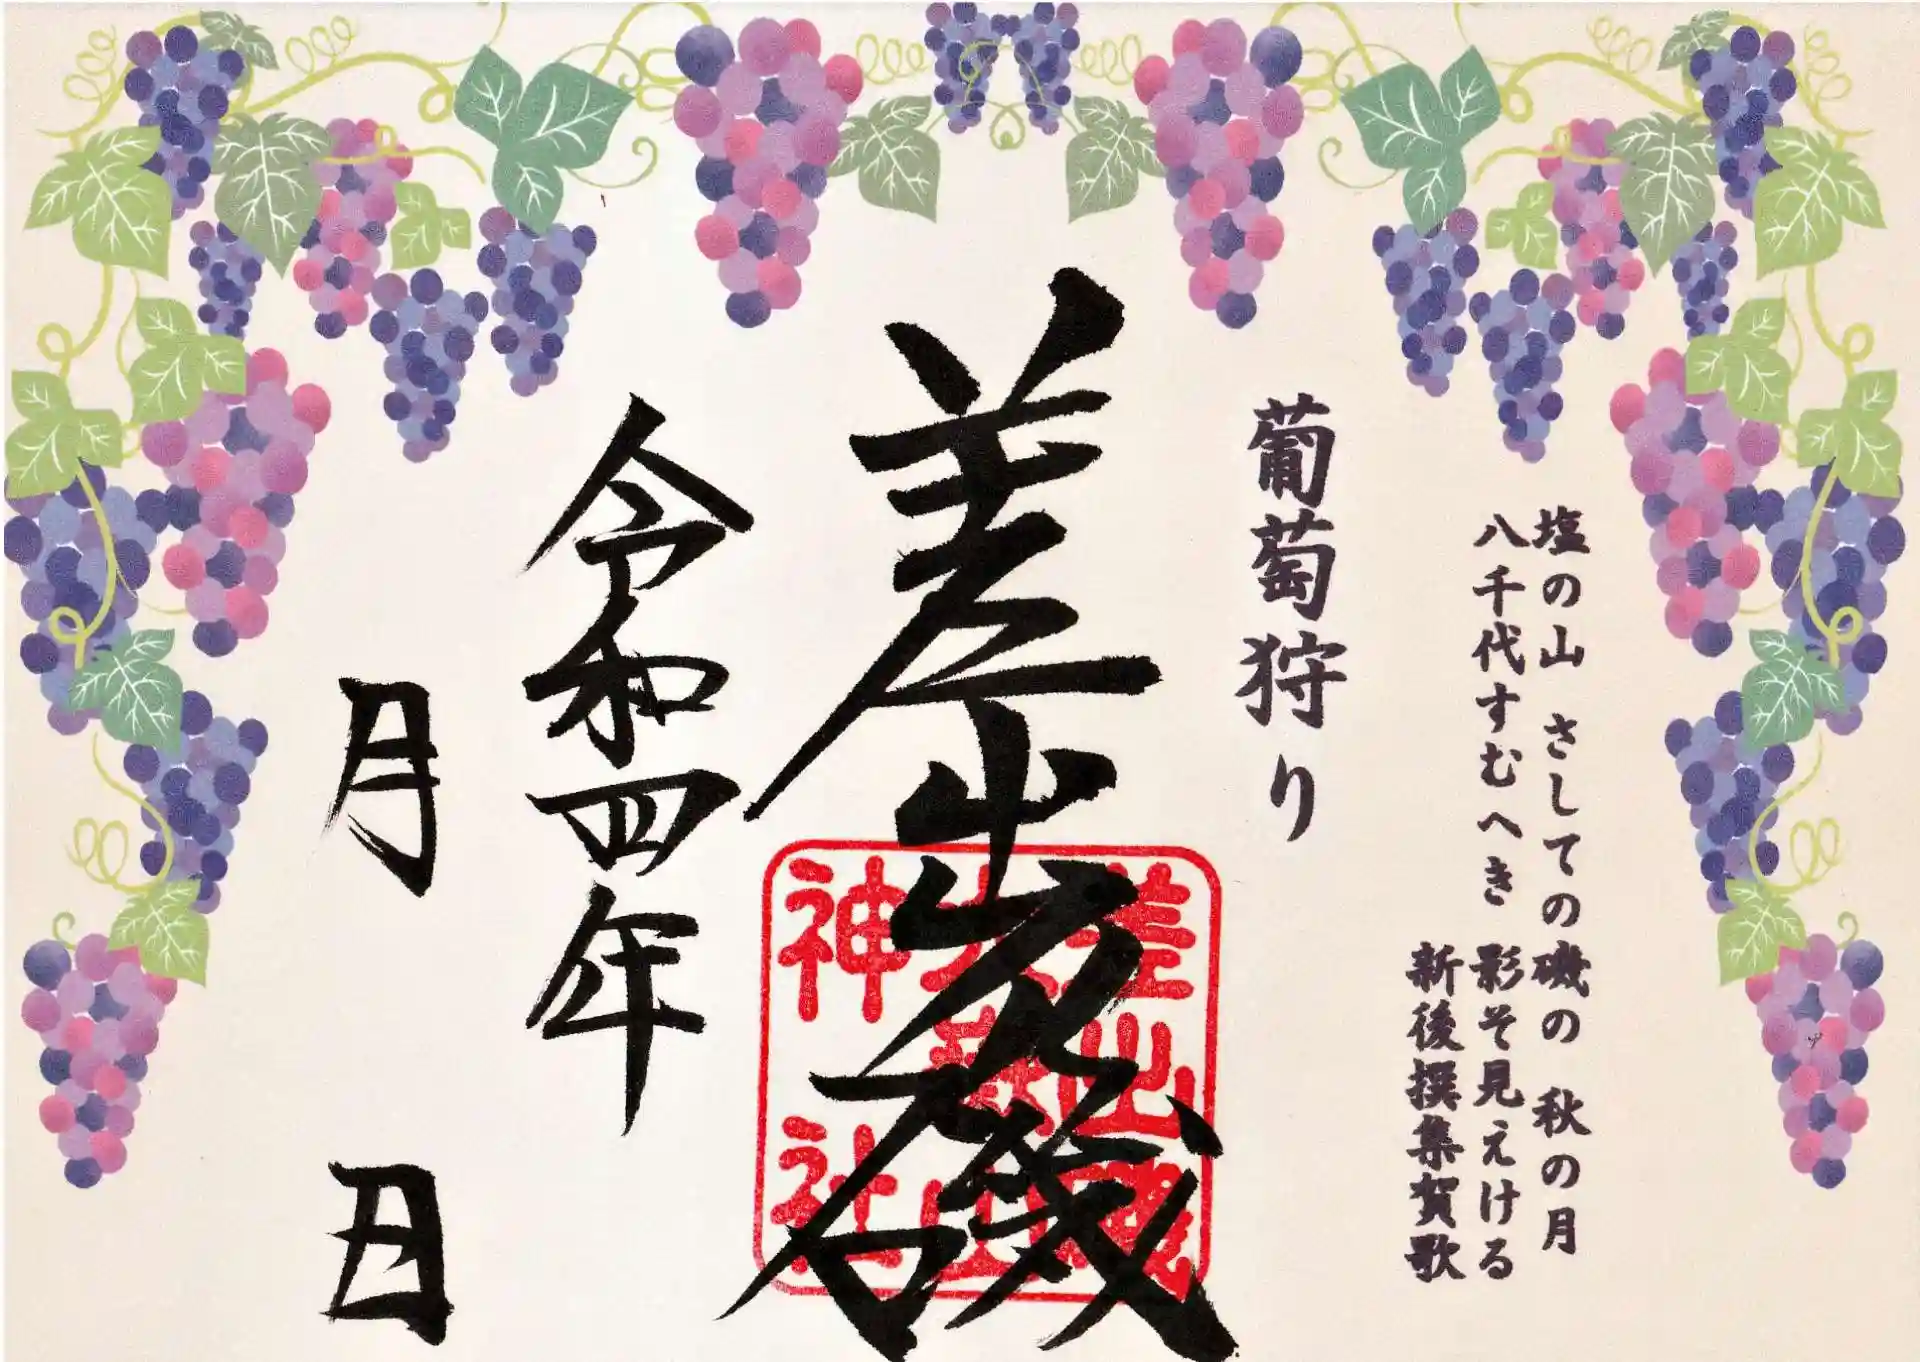 塩の山 さしての磯の 秋の月
八千代すむへき 影そ見えける
新後撰集賀歌
葡萄狩り
差出磯
差出磯
大嶽山
神社
令和四年
月 日